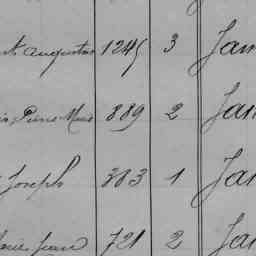 augustin 1245 3 Jan
Pierre Marie 889 2 Jan
Joseph 303 1 Jan
Marie jeanne 721 2 Jan